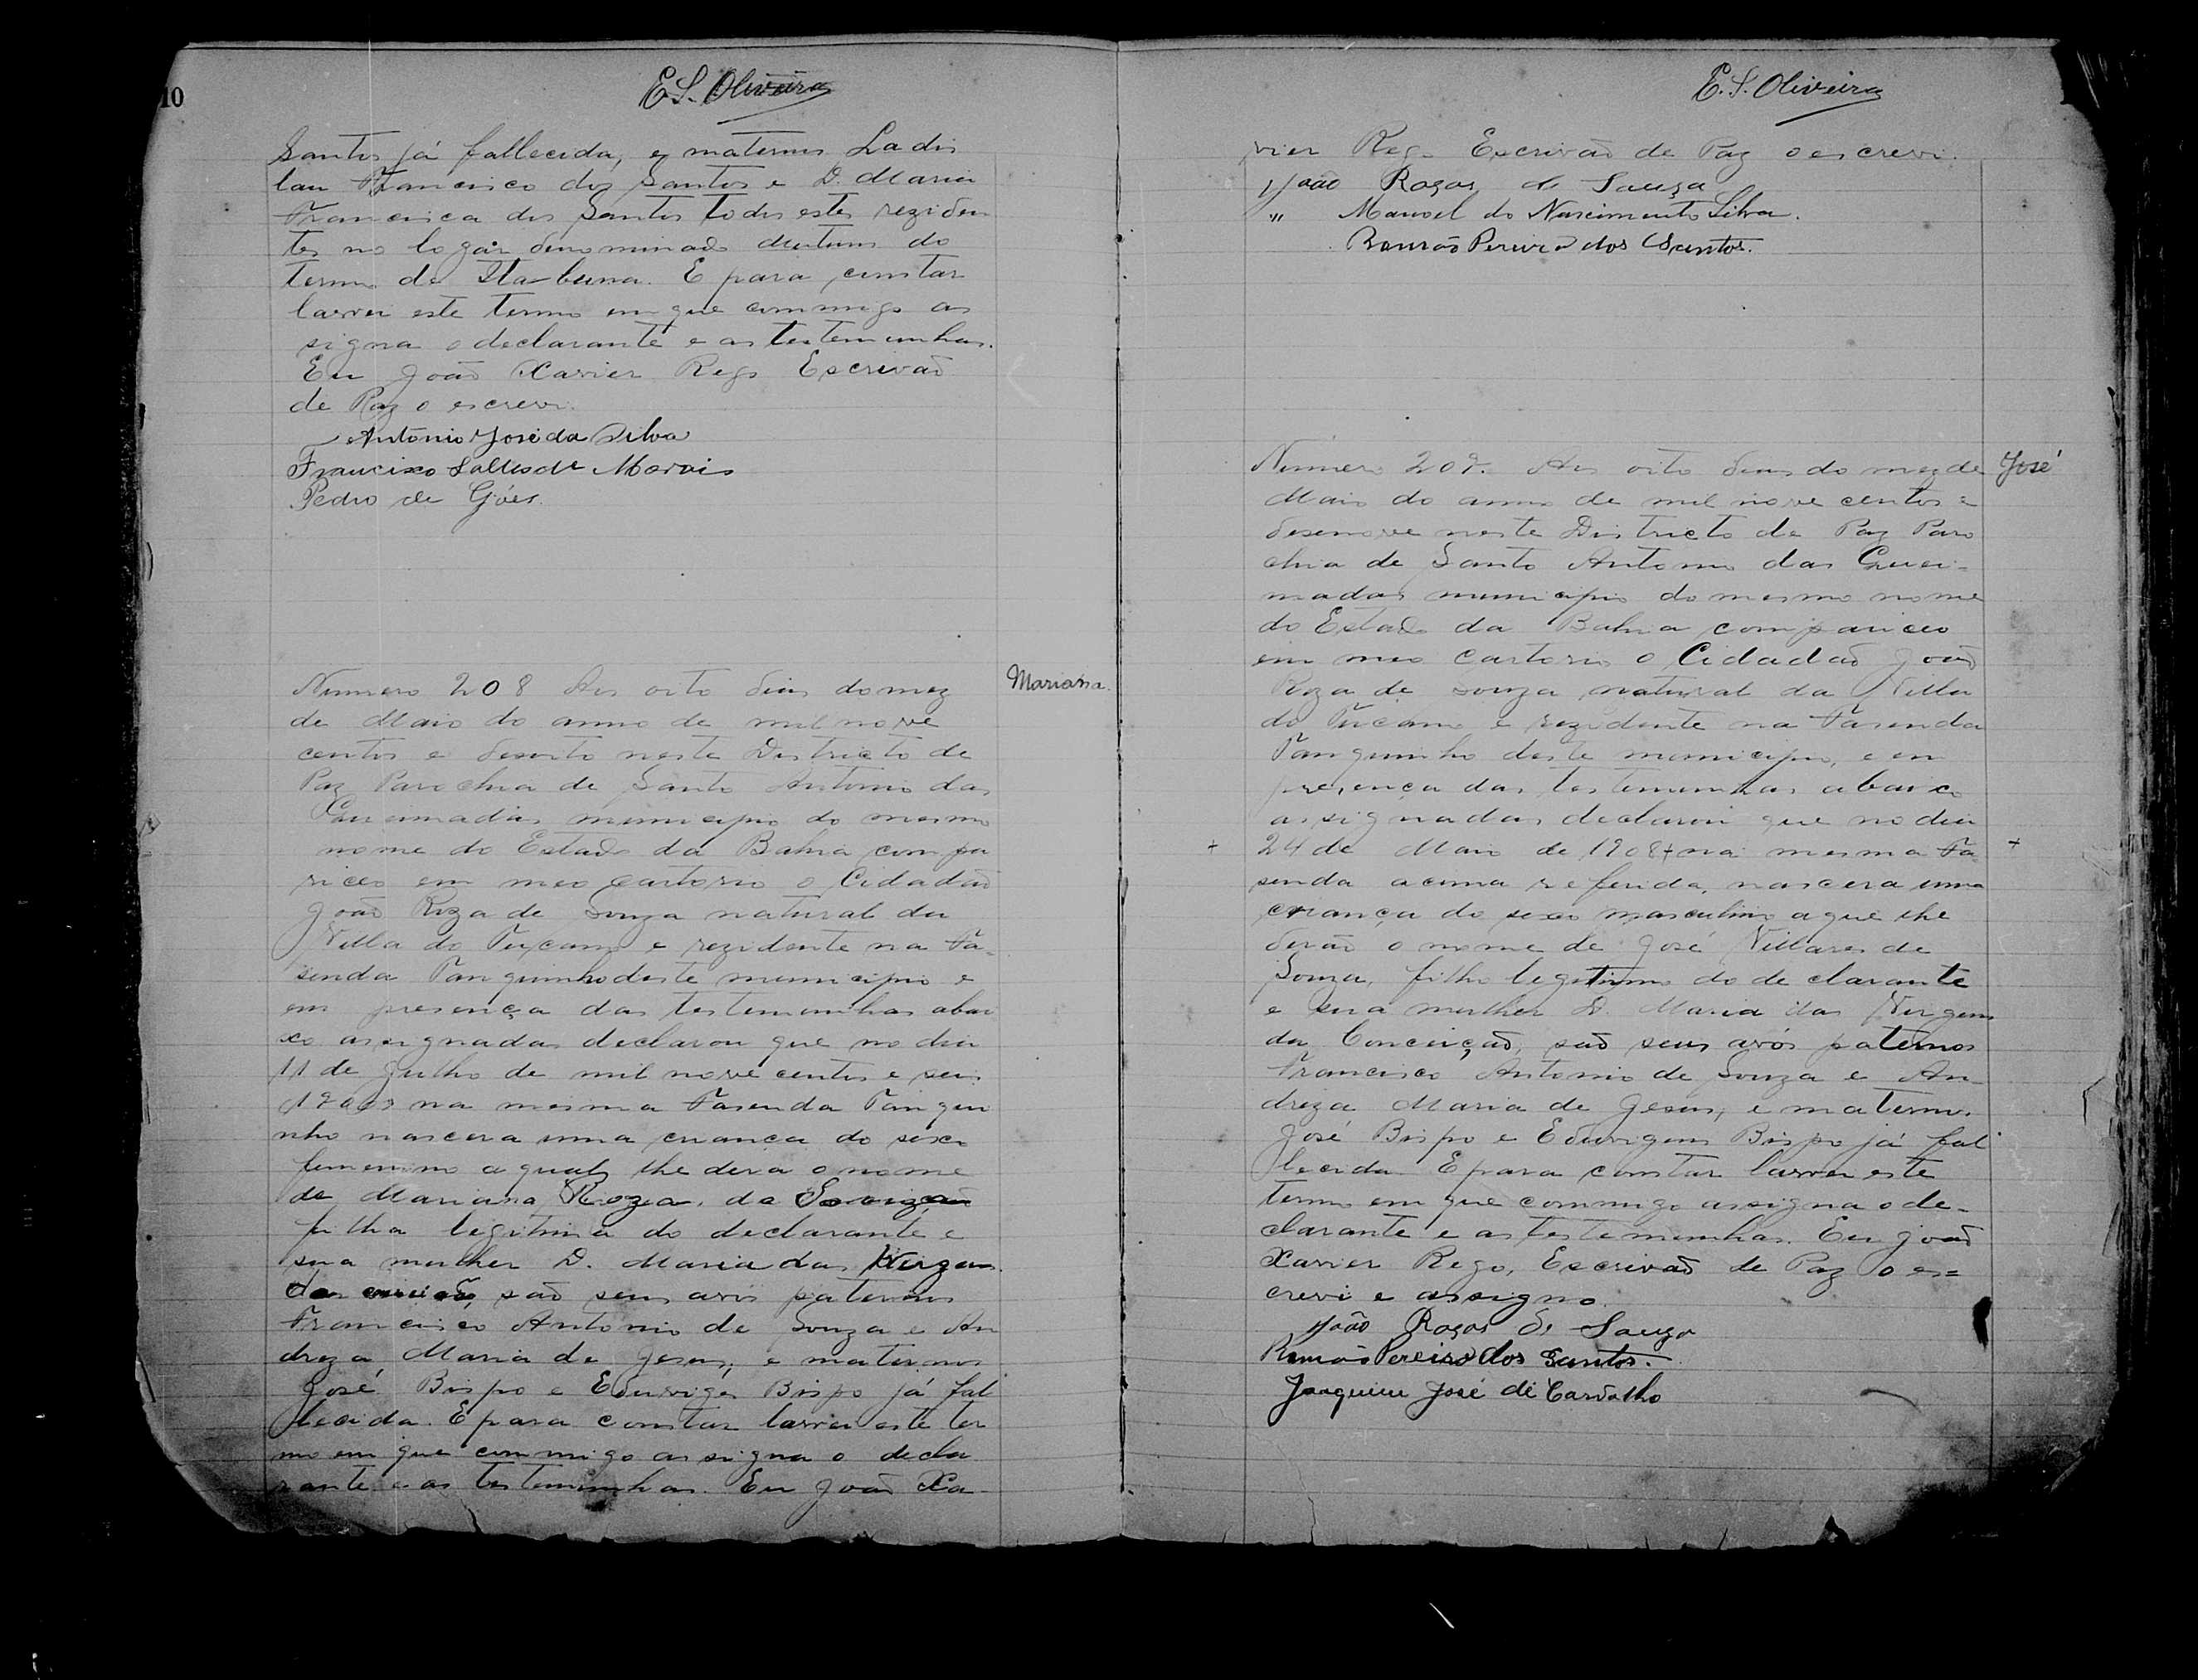 10
E.S. Oliveira
Santos já fallecida, e maternos Ladis
lau Francisco dos Santos e D. Maria
Francisca dos Santos todos estes reziden
tes no logar denominado do
termo de Itabuna. E para constar
lavrei este termo em que commigo as
signa o declarante e as testemunhas.
Eu João Xavier Rego Escrivão
de Paz o escrevi.
Antonio José da Silva
Francisco Salles de Morais
Pedro de Góes.
Mariana
Numero 208 Aos oito dias do mez
de Maio do anno de mil nove
centos e desoito neste Districto de
Paz Parochia de Santo Antonio das
Queimadas municipio do mesmo
nome do Estado da Bahia compa
riceo em meo cartorio o Cidadão
João Roza de Souza natural da
Villa do Tucano e rezidente na Fa-
senda Tanquinho deste municipio e
em presença das testemunhas abai
xo assignadas declarou que no dia
11 de Julho de mil nove centos e seis
na mesma Fasenda Tanqui
nho nascera uma criança do sexo
femenino a qual lhe dera o nome
de Mariana Roza de
filha legitima do declarante e
sua mulher D. Maria das Virgens
da são seus avós paternos
Francisco Antonio de Souza e An
dreza Maria de Jesus, e maternos
José Bispo e Eduviges Bispo já fal
lecida. E para constar lavrei este ter
mo em que commigo assigna o decla
rante e as testemunhas. Eu João Xa-
E.S. Oliveira
vier Rego Escrivão de Paz o escrevi.
João Rozas de Souza
" Manoel do Nascimento Silva.
Romão Pereira dos Santos.
José
Número 209. Aos oito dias do mez de
Maio do anno de mil nove centos e
desenove neste Districto de Paz Paro
chia de Santo Antonio das Quei-
madas municipio do mesmo nome
do Estado da Bahia compariceo
em meo cartorio o Cidadão João
Roza de Souza natural da Villa
do Tucano e rezidente na Fasenda
Tanquinho deste municipio, e em
presença das testemunhas abaixo
assignadas declarou que no dia
+ 24 de Maio de 1908 + na mesma Fa- +
senda acima referida, nascera uma
criança do sexo masculino a que lhe
derão o nome de José Villares de
Souza, filho legitimo do declarante
e sua mulher D. Maria das Virgens
da Conceição, são seus avós paternos
Francisco Antonio de Souza e An-
dreza Maria de Jesus, e maternos
José Bispo e Eduvigens Bispo já fal
lecida. E para constar lavrei este
termo em que commigo assigna o de-
clarante e as testemunhas. Eu João
Xavier Rego, Escrivão de Paz o es=
crevi e assigno.
João Rozas de Souza
Romão Pereira dos Santos.
Joaquim José de Carvalho